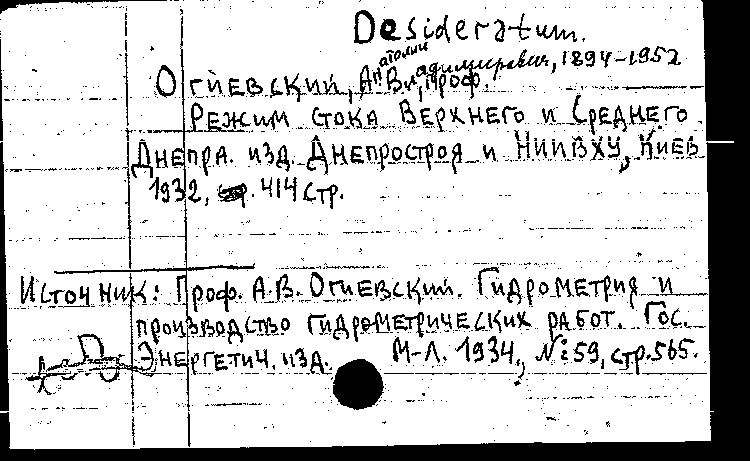 Desideratum.
Огиевский, Анатолий Владимирович, 1894-1952
проф.
Режим стока Верхнего и Среднего
Днепра. изд. Днепростроя и НИИВХУ, Киев
1932, 414 стр.
Источник: Проф. А.В. Огиевский. Гидрометрия и
производство гидрометрических работ. Гос.
Энергетич. изд. М-Л. 1934, №: 59, стр. 565.